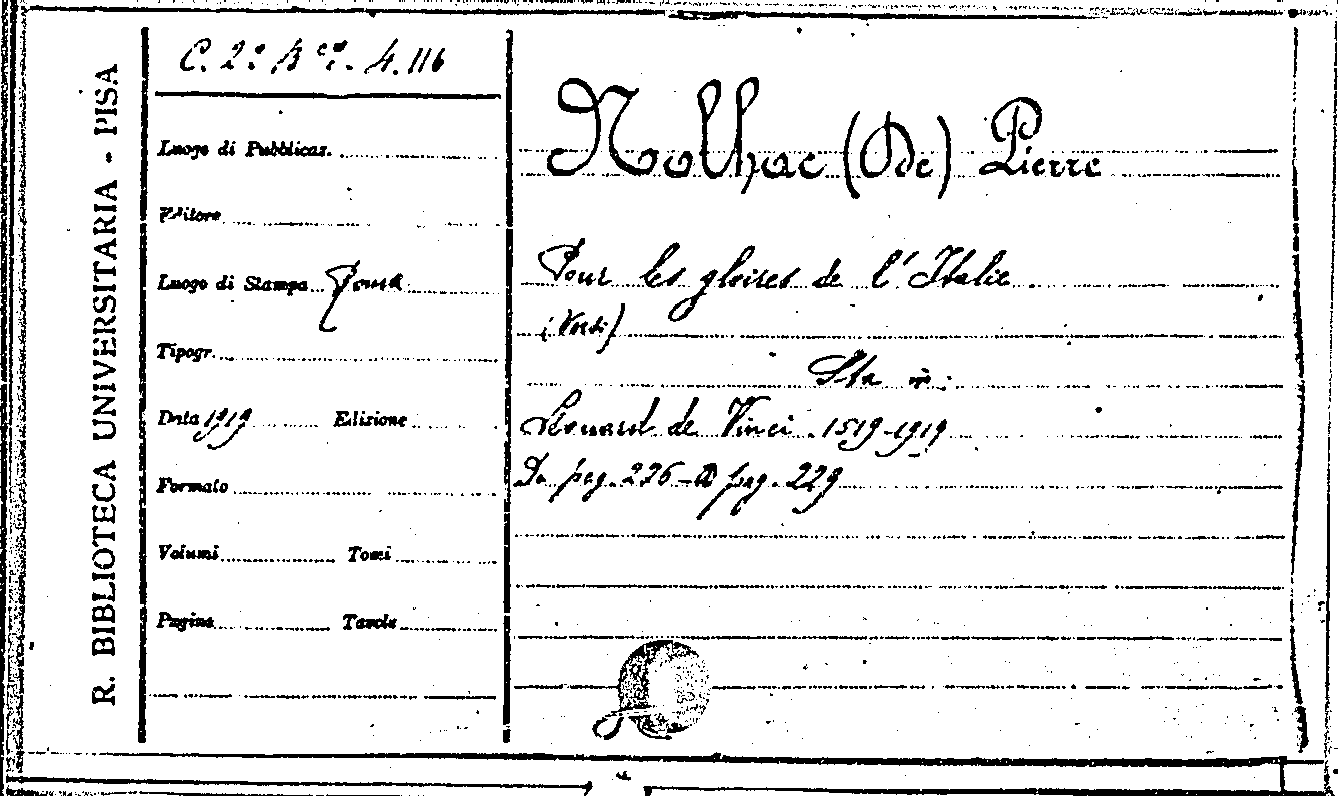 R. BIBLIOTECA UNIVERSITARIA - PISA
C. 2° 4.116
Luogo di Pubblicaz.
Editore
Luogo di Stampa Roma
Tipogr.
Data 1919 Edizione
Formato
Volumi Tomi
Pagine Tavole
Nolhac (De) Pierre
Pour les gloires de l'Italie
(Versi)
Sta in:
Léonard de Vinci. 1519-1919
Da pag. 276 - a pag. 229